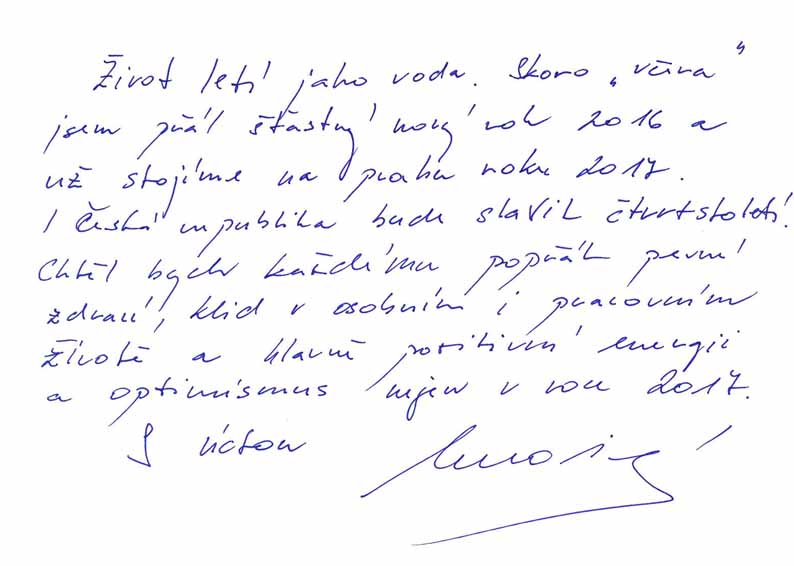 Život letí jako voda. Skoro „včera“
jsem přál šťastný nový rok 2016 a
už stojíme na prahu roku 2017.
I Česká republika bude slavit čtvrtstoletí.
Chtěl bych každému popřát pevné
zdraví, klid v osobním i pracovním
životě a hlavně pozitivní energii
a optimismus nejen v roce 2017.
S úctou